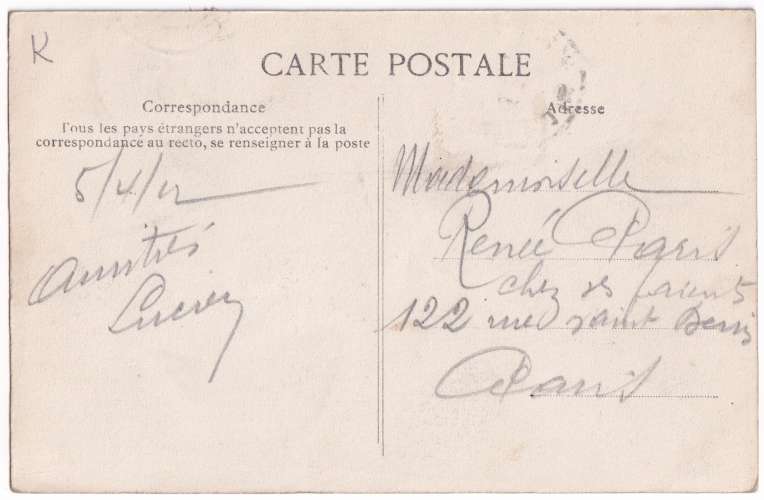 K
CARTE POSTALE
Correspondance
Tous les pays étrangers n'acceptent pas la
correspondance au recto, se renseigner à la poste
5/4/12
Amitiés
Lucien
Adresse
Mademoiselle
Renée Paris
chez ses parents
122 rue Saint Denis
Paris